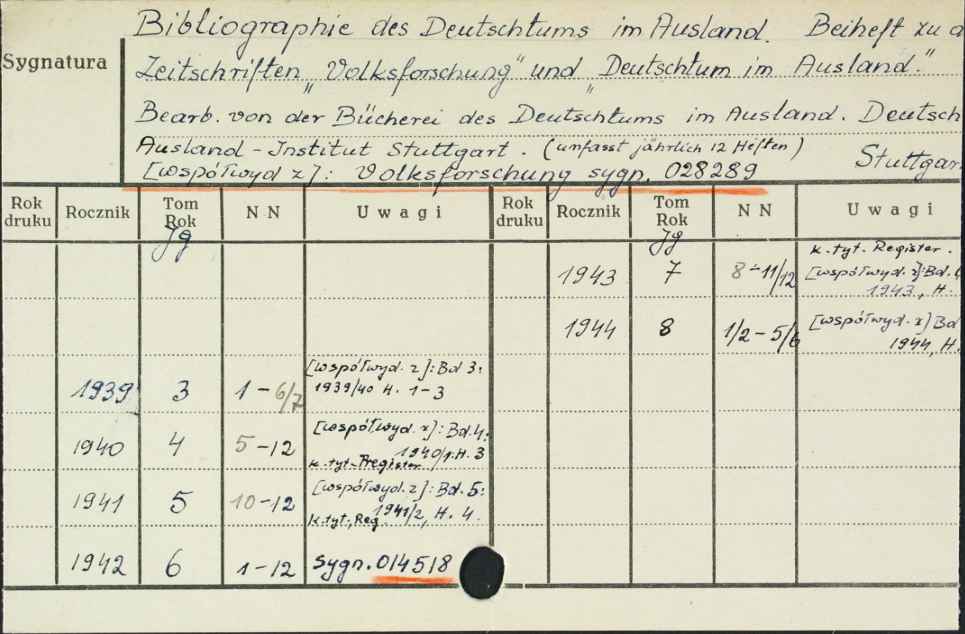 Bibliographie des Deutschtums im Ausland. Beiheft zu d
Sygnatura
Zeitschriften „Volksforschung" und „Deutschtum im Ausland."
Bearb. von der Bücherei des Deutschtums im Ausland. Deutsch
Ausland-Institut Stuttgart. (umfasst jährlich 12 Heften) Stuttgar
[współwyd z]: Volksforschung sygn. 028289
Rok druku Rocznik Tom Rok NN Uwagi Rok druku Rocznik Tom Rok NN Uwagi
Jg Jg
1943 7 8-11/12 k. tyt. Register.
[współwyd. z]: Bd.
1943, H.
1944 8 1/2-5/6 [współwyd. z] Bd
1944, H.
1939 3 1-6/7 [współwyd. z]: Bd 3:
1939/40 H. 1-3
1940 4 5-12 [współwyd. z]: Bd. 4:
1940/1. H. 3
k. tyt-Register
1941 5 10-12 [współwyd. z]: Bd. 5:
1941/2, H. 4.
k. tyt., Reg.
1942 6 1-12 sygn. 014518